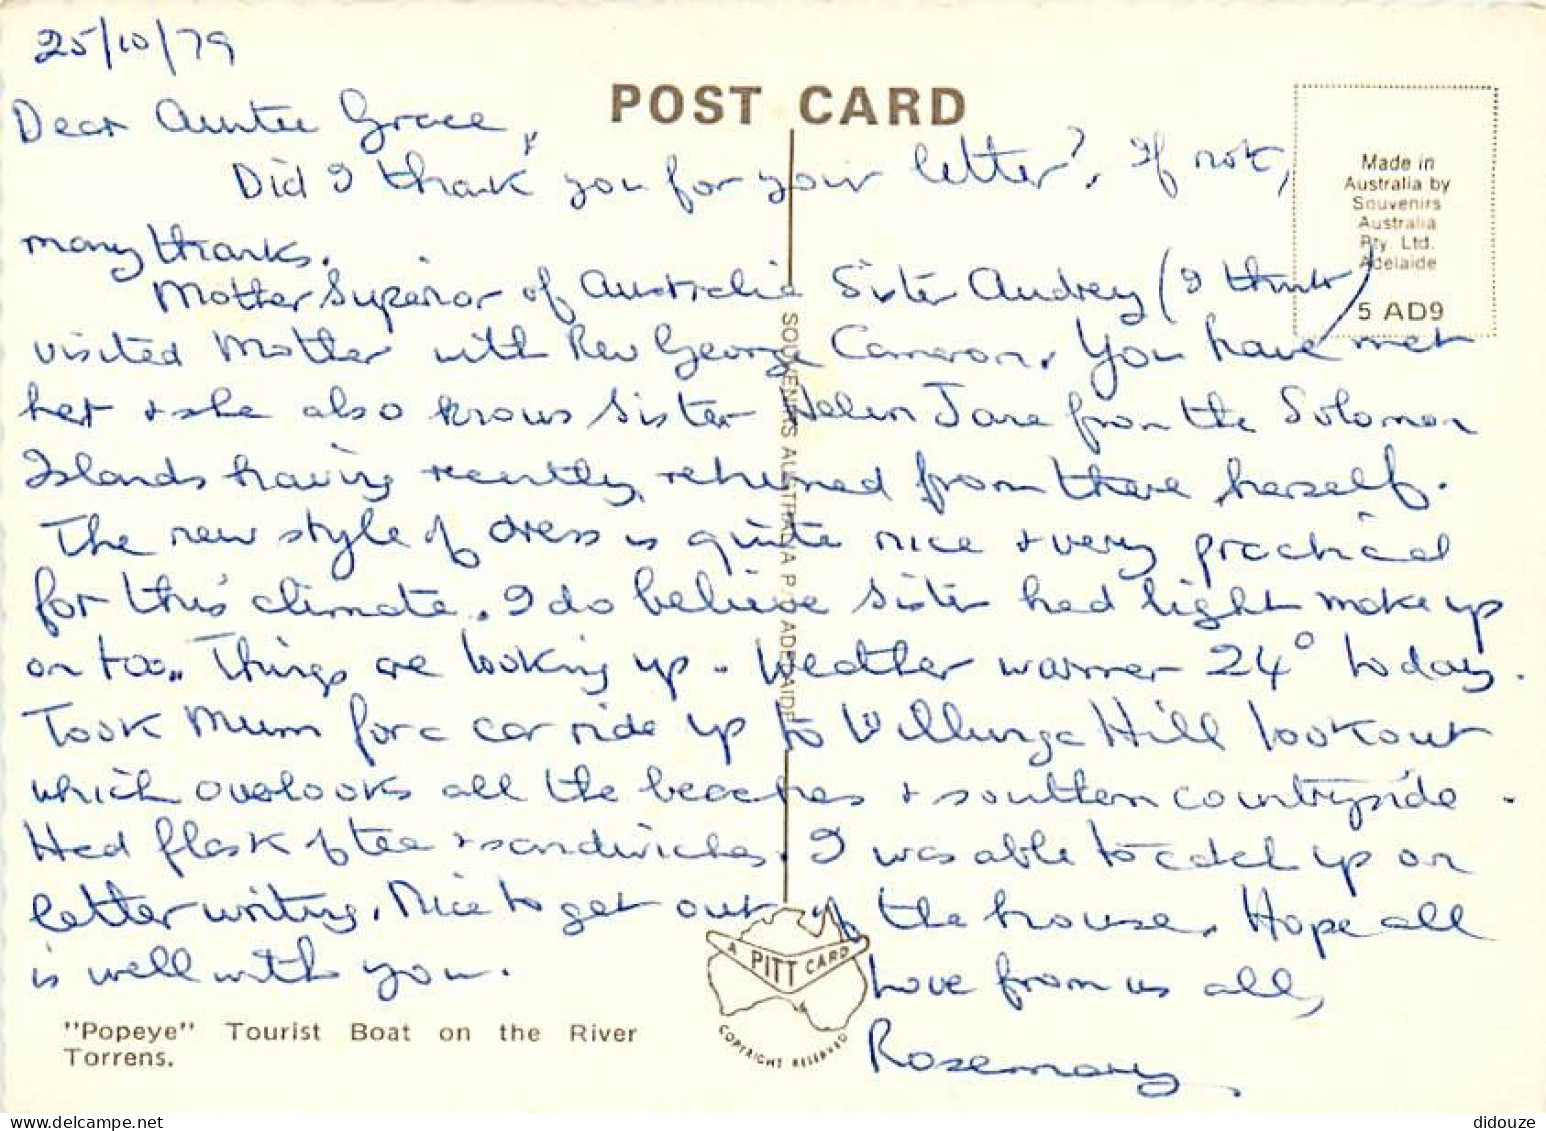 25/10/79
POST CARD
Dear Auntie Grace,
Did I thank you for your letter?. If not,
many thanks.
Mother Superior of Australia Sister Audrey (I think)
visited Mother with Rev George Cameron. You have met
her + she also knows Sister Helen Jane from the Solomon
Islands having recently returned from there herself.
The new style of dress is quite nice + very practical
for this climate. I do believe Sister had light make up
on too.. Things are looking up. Weather warmer 24° today.
Took Mum for a car ride up to Willunga Hill lookout
which overlooks all the beaches + southern countryside.
Had flask of tea + sandwiches. I was able to catch up on
letter writing. Nice to get out of the house. Hope all
is well with you.
Love from us all,
Rosemary
Made in
Australia by
Souvenirs
Australia
Pty. Ltd.
Adelaide
5 AD9
SOUVENIRS AUSTRALIA P. ADELAIDE
A PITT CARD
COPYRIGHT RESERVED
"Popeye" Tourist Boat on the River
Torrens.
didouze